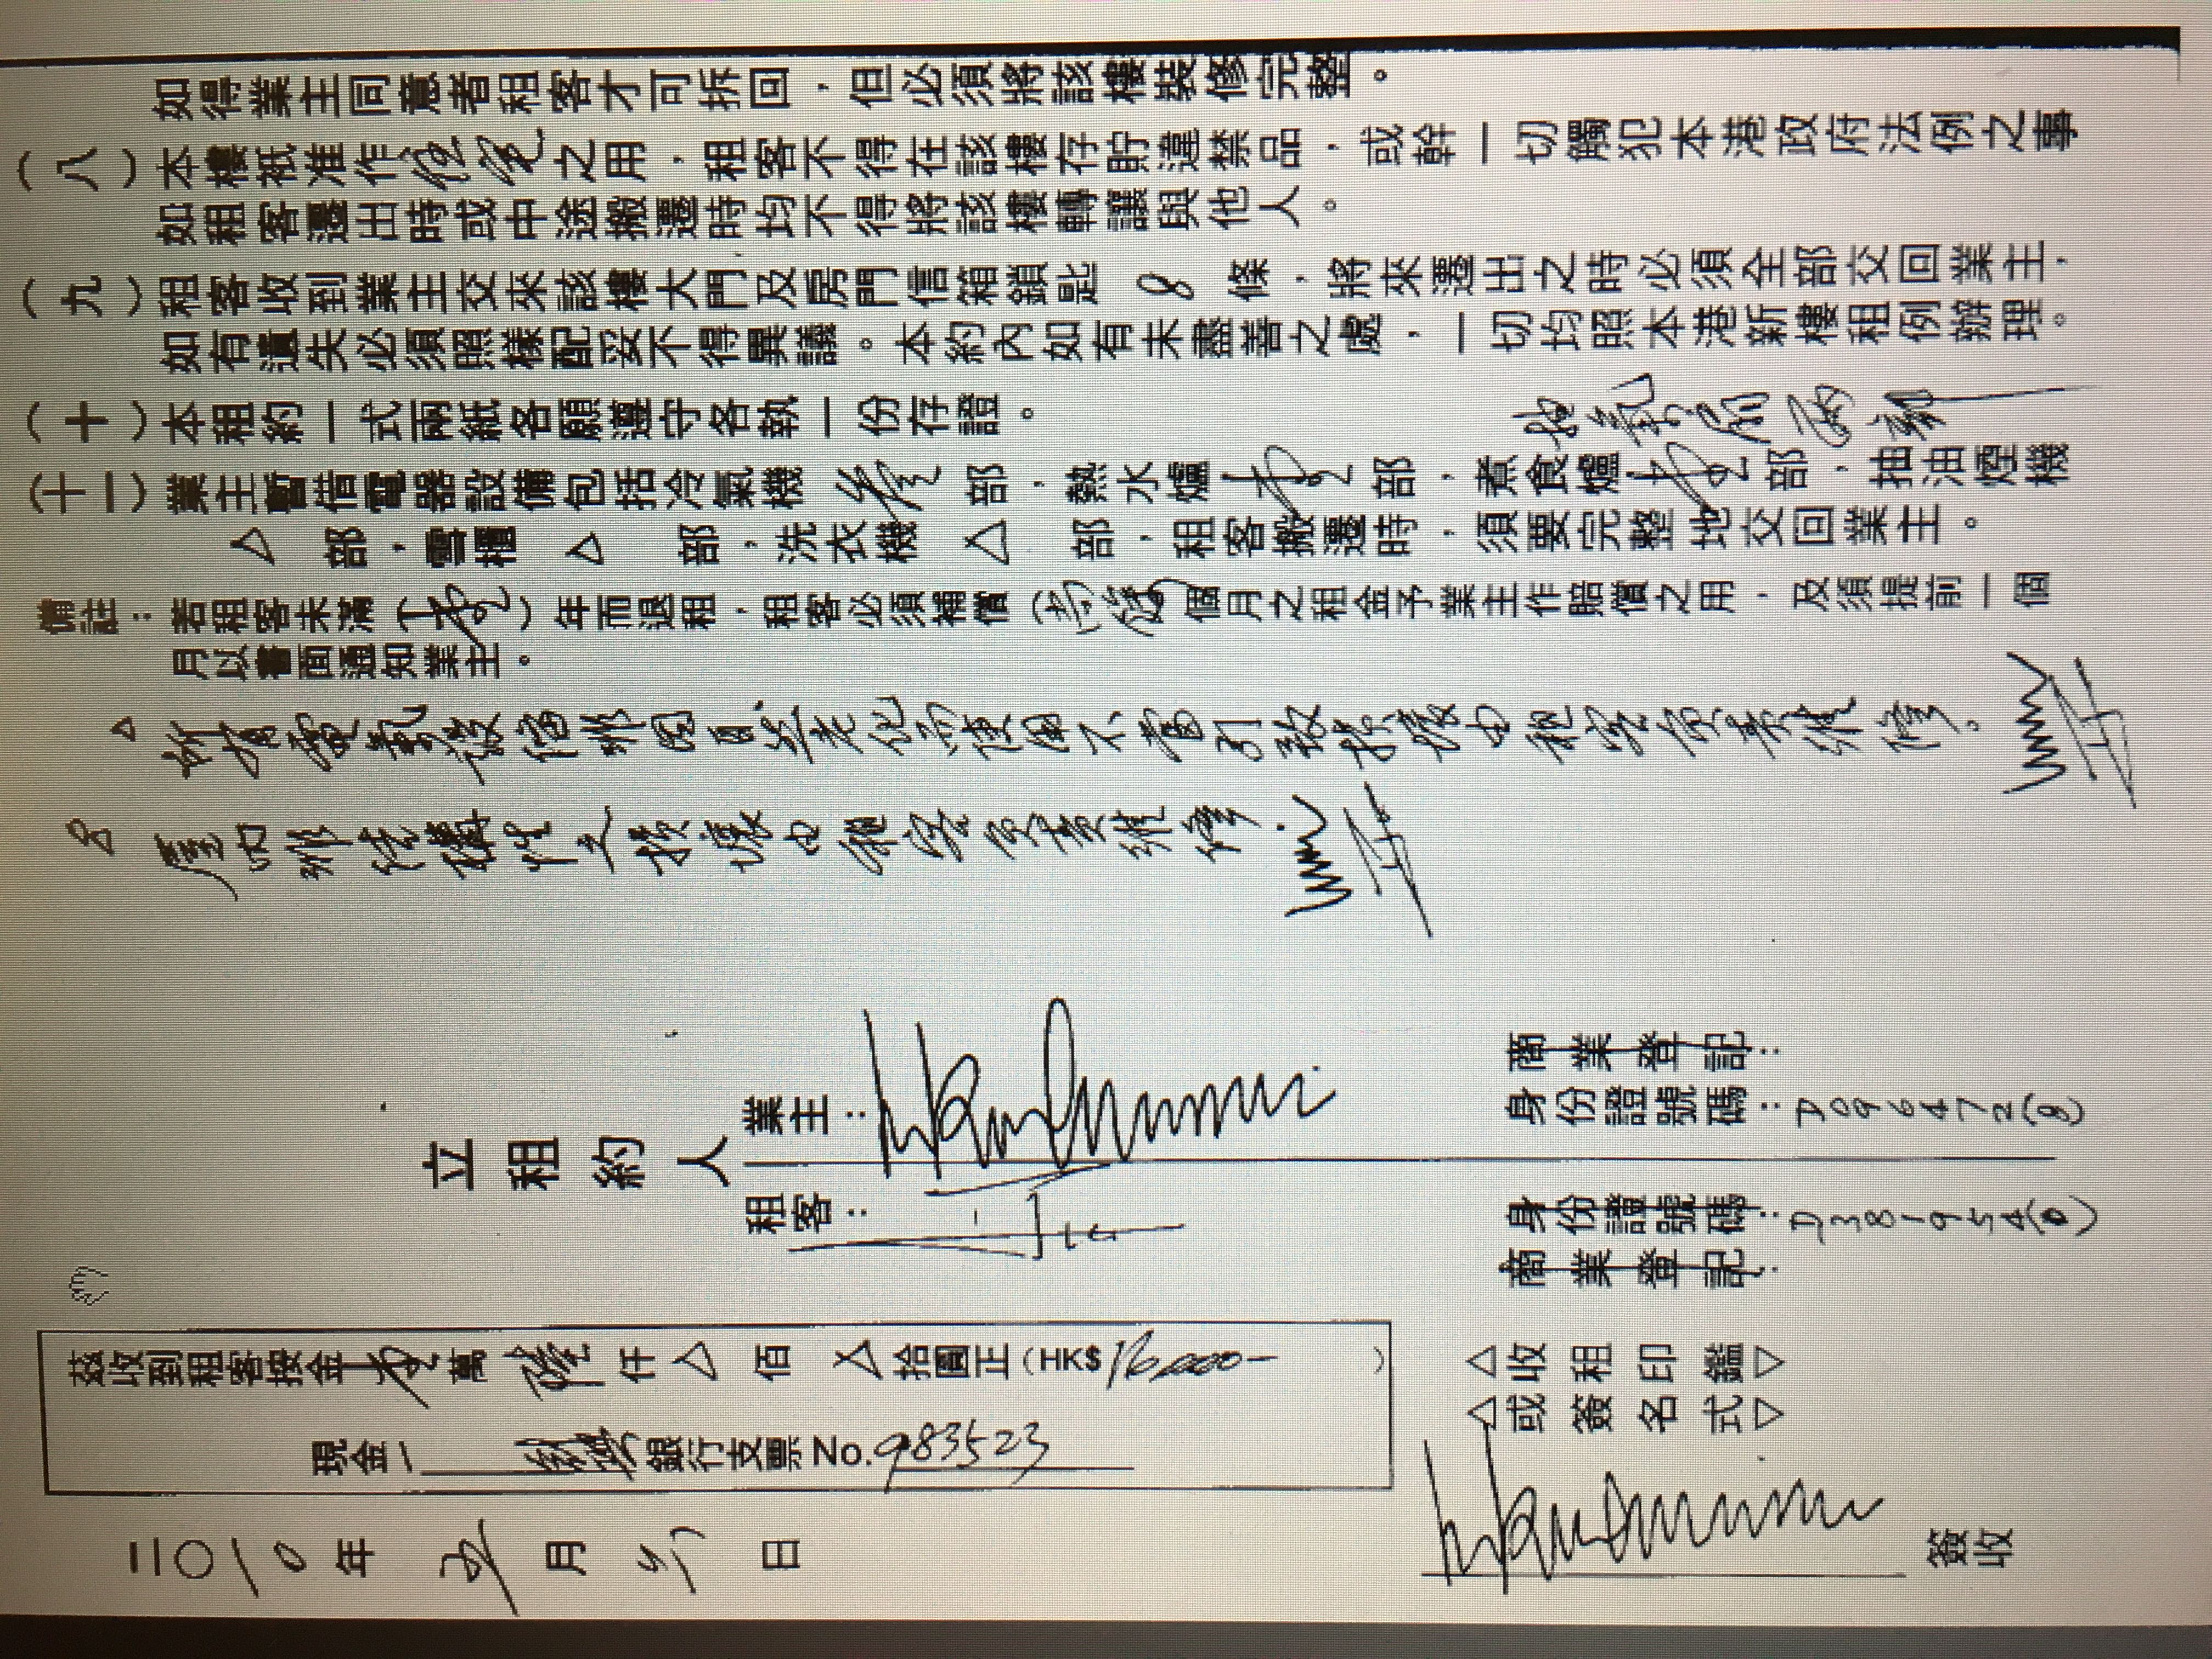 如得業主同意者租客才可拆回，但必須將該樓裝修完整。
（八）本樓祇准作住宅之用，租客不得在該樓存貯違禁品，或幹一切觸犯本港政府法例之事
如租客遷出時或中途搬遷時均不得將該樓轉讓與他人。
（九）租客收到業主交來該樓大門及房門信箱鎖匙 8 條，將來遷出之時必須全部交回業主，
如有遺失必須照樣配妥不得異議。本約內如有未盡善之處，一切均照本港新樓租例辦理。
（十）本租約一式兩紙各願遵守各執一份存證。
（十一）業主暫借電器設備包括冷氣機 部，熱水爐 壹 部，煮食爐 壹 部，抽油煙機
△ 部，雪櫃 △ 部，洗衣機 △ 部，租客搬遷時，須要完整地交回業主。
備註：若租客未滿（壹）年而退租，租客必須補償（ ）個月之租金予業主作賠償之用，及須提前一個
月以書面通知業主。
△ 所有電氣設備非因自然老化而使用不當引致損壞由租客負責維修。
屋內非結構性之損壞由租客負責維修
立租約人
業主：
租客：
商業登記：
身份證號碼：D096472(8)
身份證號碼：D381954(0)
商業登記：
茲收到租客按金壹萬陸仟△佰△拾圓正（HK$16,000- ）
現金／ 銀行支票No.983523
△收租印鑑▽
△或簽名式▽
二〇10年 月 日
簽收